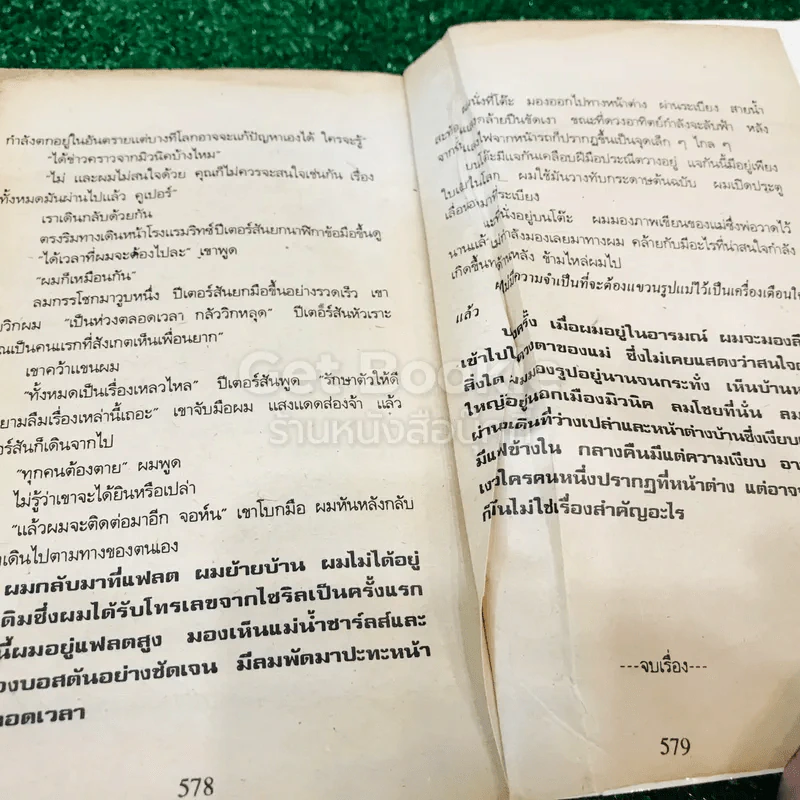 กำลังตกอยู่ในอันตรายแต่บางทีโลกอาจจะแก้ปัญหาเองได้ ใครจะรู้"
"ได้ข่าวคราวจากมิวนิคบ้างไหม"
"ไม่ และผมไม่สนใจด้วย คุณก็ไม่ควรจะสนใจเช่นกัน เรื่อง
ทั้งหมดมันผ่านไปแล้ว คูเปอร์"
เราเดินกลับด้วยกัน
ตรงริมทางเดินหน้าโรงแรมริทซ์ปีเตอร์สันยกนาฬิกาข้อมือขึ้นดู
"ได้เวลาที่ผมจะต้องไปละ" เขาพูด
"ผมก็เหมือนกัน"
ลมกรรโชกมาวูบหนึ่ง ปีเตอร์สันยกมือขึ้นอย่างรวดเร็ว เขา
วิกผม "เป็นห่วงตลอดเวลา กลัววิกหลุด" ปีเตอร์สันหัวเราะ
เป็นคนแรกที่สังเกตเห็นเพื่อนยาก"
เขาคว้าแขนผม
"ทั้งหมดเป็นเรื่องเหลวไหล" ปีเตอร์สันพูด "รักษาตัวให้ดี
ยามลืมเรื่องเหล่านี้เถอะ" เขาจับมือผม แสงแดดส่องจ้า แล้ว
อร์สันก็เดินจากไป
"ทุกคนต้องตาย" ผมพูด
ไม่รู้ว่าเขาจะได้ยินหรือเปล่า
"แล้วผมจะติดต่อมาอีก จอห์น" เขาโบกมือ ผมหันหลังกลับ
เดินไปตามทางของตนเอง
ผมกลับมาที่แฟลต ผมย้ายบ้าน ผมไม่ได้อยู่
ดิมซึ่งผมได้รับโทรเลขจากไซริลเป็นครั้งแรก
นี้ผมอยู่แฟลตสูง มองเห็นแม่น้ำชาร์ลส์และ
องบอสตันอย่างชัดเจน มีลมพัดมาปะทะหน้า
ลอดเวลา
578
นั่งที่โต๊ะ มองออกไปทางหน้าต่าง ผ่านระเบียง สายน้ำ
คล้ายปืนขัดเงา ขณะที่ดวงอาทิตย์กำลังจะลับฟ้า หลัง
ไฟจากหน้ารถก็ปรากฏขึ้นเป็นจุดเล็ก ๆ ไกล ๆ
บนโต๊ะมีแจกันเคลือบฝีมือประณีตวางอยู่ แจกันนี้มีอยู่เพียง
ในโลก ผมใช้มันวางทับกระดาษต้นฉบับ ผมเปิดประตู
ที่ระเบียง
นั่งอยู่บนโต๊ะ ผมมองภาพเขียนของแม่ซึ่งพ่อวาดไว้
นานแล้ว กำลังมองเลยมาทางผม คล้ายกับมีอะไรที่น่าสนใจกำลัง
เกิดขึ้น หลัง ข้ามไหล่ผมไป
ไม่มีความจำเป็นที่จะต้องแขวนรูปแม่ไว้เป็นเครื่องเตือนใจ
แล้ว
ครั้ง เมื่อผมอยู่ในอารมณ์ ผมจะมองลึ
เข้าไปใ ดวงตาของแม่ ซึ่งไม่เคยแสดงว่าสนใจ
สิ่งใด ผมมองรูปอยู่นานจนกระทั่ง เห็นบ้าน
ใหญ่อยู่นอกเมืองมิวนิค ลมโชยที่นั่น ลม
ผ่าน เดินที่ว่างเปล่าและหน้าต่างบ้านซึ่งเงียบ
มีแฟ ข้างใน กลางคืนมีแต่ความเงียบ อา
เงาใครคนหนึ่งปรากฏที่หน้าต่าง แต่อาจ
ก็ ไม่ใช่เรื่องสำคัญอะไร
---จบเรื่อง---
579